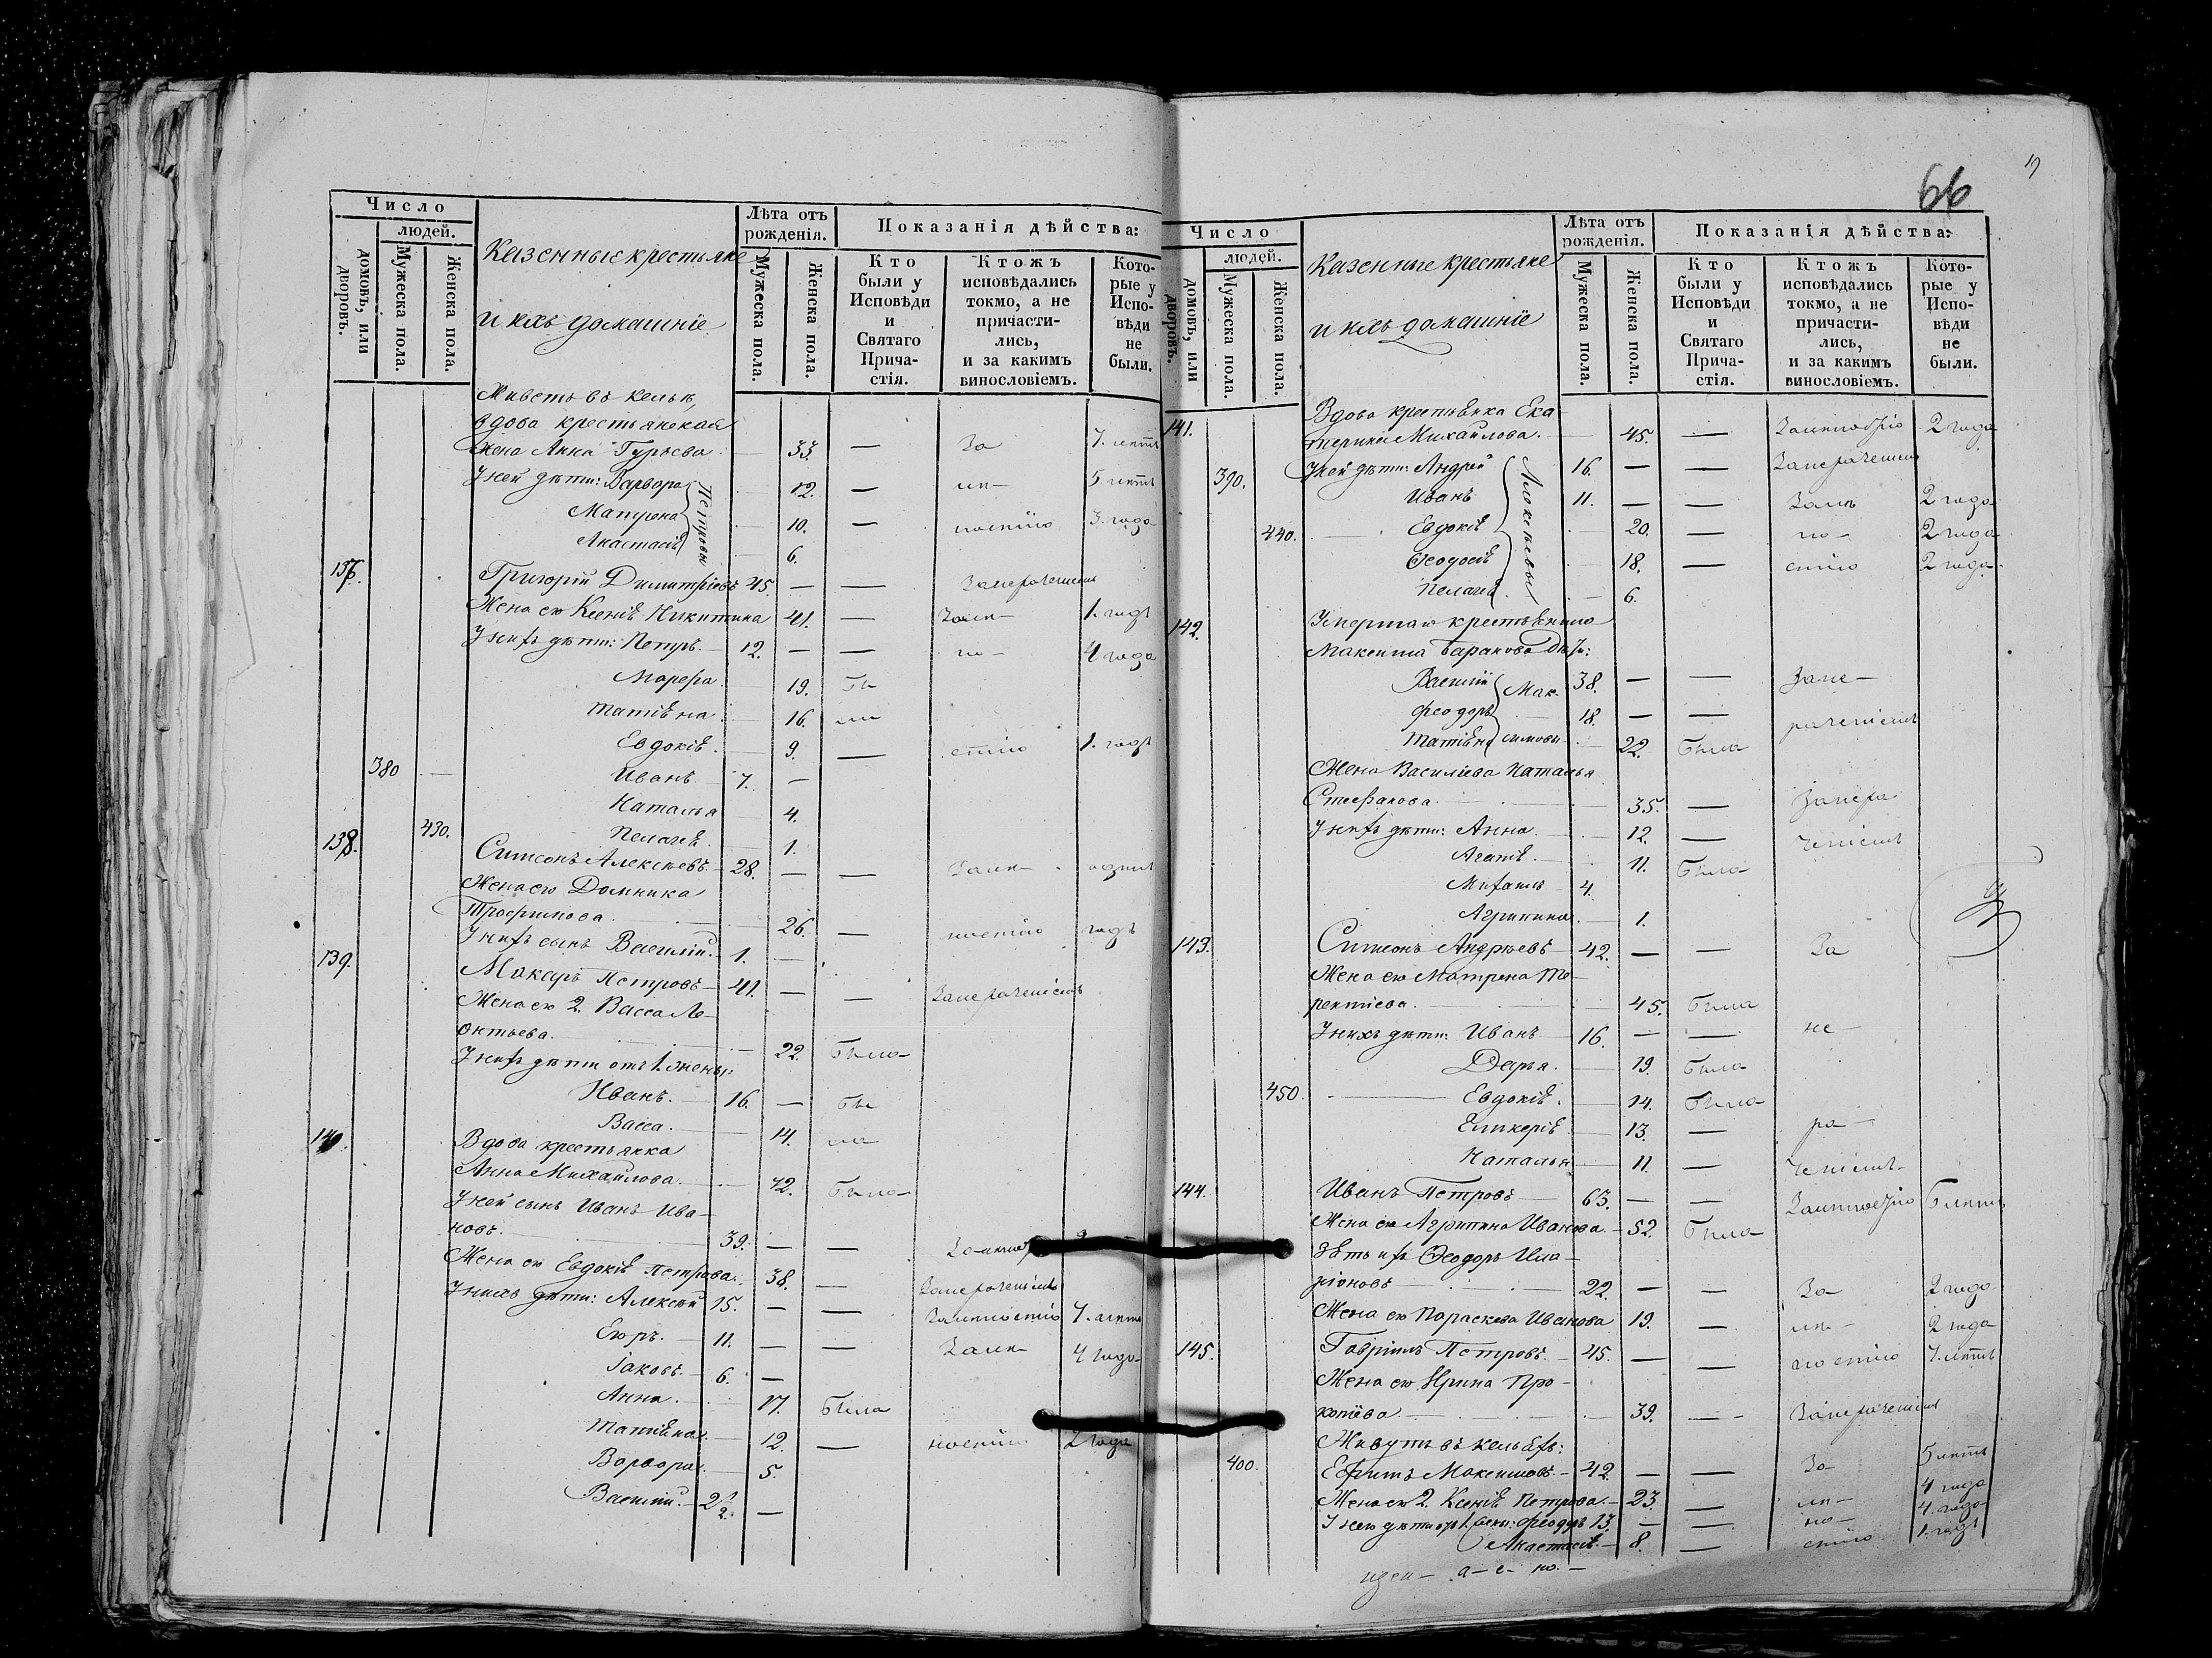 Число
людей.
домовъ, или дворовъ.
Мужеска пола.
Женска пола.
Казенные крестьяне
и ихъ домашніе
Лѣта отъ рожденія.
Мужеска пола.
Женска пола.
Показанія дѣйства:
Кто были у Исповѣди и Святаго Прича-стія.
Ктожъ исповѣдались токмо, а не причасти-лись, и за какимъ винословіемъ.
Кото-рые у Испо-вѣди не были.
Живетъ въ кельи,
вдова крестьянская
жена Анна Гурьева 33. — За 7. лѣтъ
У ней дѣти: Варвара 12. — лѣ- 5 лѣтъ
Матрена 10. — ностію 3. года
Анастасія 6.
Петровы
137. Григорій Димитріевъ 45. — — За нераченіемъ
Жена его Ксенія Никитина 41. — За лѣ- 1. годъ
У нихъ дѣти: Петръ. 12. — — но- 4 года
Марфа 19. Бы
Татіяна 16. ли
Евдокія. 9. — стію 1. годъ
380 — Иванъ. 7. —
Наталья 4.
430. Пелагея. 1.
138. Симеонъ Алексѣевъ. 28. — — За лѣ- одинъ
Жена его Домника
Трофимова. 26. — ностію годъ
У нихъ сынъ Василій. 1. —
139. Макаръ Петровъ — 41. — — За нераченіемъ
Жена его 2. Васса Ле-
онтьева. 22. Была
У нихъ дѣти отъ 1. жены:
Иванъ. 16. — бы
Васса. 14. ла
140. Вдова крестьянка
Анна Михайлова. 72. Была
У ней сынъ Иванъ Ива-
новъ. 39. — —
Жена его Евдокія Петрова. 38. — За нераченіемъ
У нихъ дѣти: Алексѣй 15. — — За лѣностію 7. лѣтъ
Егоръ. 11. — — За лѣ- 4 года
Іаковъ. 6. —
Анна. 17. Была
Татіяна. 12. — ностію 2 года
Варвара. 5.
Василій. 2½. —
66
Число
людей.
домовъ, или дворовъ.
Мужеска пола.
Женска пола.
Казенные крестьяне
и ихъ домашніе
Лѣта отъ рожденія.
Мужеска пола.
Женска пола.
Показанія дѣйства:
Кто были у Исповѣди и Святаго Прича-стія.
Ктожъ исповѣдались токмо, а не причасти-лись, и за какимъ винословіемъ.
Кото-рые у Испо-вѣди не были.
141. Вдова крестьянка Ека-
терина Михайлова. 45. — За лѣностію 2 года
390. У ней дѣти: Андрей 16. — — За нераченіемъ
Иванъ 11. — — За лѣ 2 года
440. Евдокія 20. — но- 2 года
Ѳеодосія 18. — стію 2 года
Пелагея 6.
Алексѣевы
142. Умершаго крестьянина
Максима Баранова Дѣти:
Василій 38. — — За не-
Феодоръ 18. — — раченіемъ
Татіяна 22. Была
Мак-
симовы
Жена Васильева Наталья
Стефанова. 35. — За нера
У нихъ дѣти: Анна. 12. — ченіемъ
Агапія. 11. Была
Михаилъ 4.
Агрипина. 1.
143. Симеонъ Андреевъ 42. — — За
Жена его Матрена Те-
рентіева. 45. Была
У нихъ дѣти: Иванъ 16. — — не-
Дарья. 19. Была
450. Евдокія. 14. Была
Гликерія 13. — ра-
Наталья 11. — ченіемъ
144. Иванъ Петровъ 63. — — За лѣностію 6 лѣтъ
Жена его Агрипина Иванова. 52. Была
Зять ихъ Ѳеодоръ Ила-
ріоновъ 22. — — За 2 года
Жена его Параскева Иванова 19. — лѣ- 2 года
145. Гавріилъ Петровъ. 45. — — ностію 7. лѣтъ
Жена его Ирина Про-
копіева. 39. — За нераченіемъ
Живутъ въ кельяхъ:
400. Ефимъ Максимовъ. 42. — — За 5 лѣтъ
Жена его 2. Ксенія Петрова. 23. — лѣ- 4 года
У него дѣти отъ 1. жены: Феодоръ 13. — — но- 4. года
Анастасія. 8. — стію 1. годъ